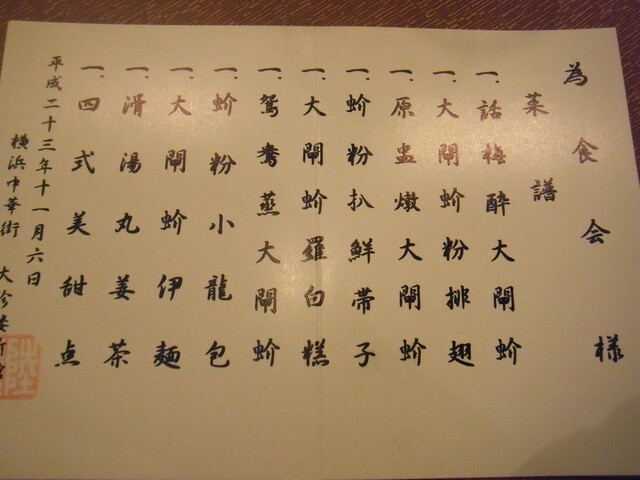 為食会 様
菜譜
一.話梅醉大閘蚧
一.大閘蚧粉排翅
一.原盅燉大閘蚧
一.蚧粉扒鮮帯子
一.大閘蚧羅白糕
一.鴛鴦蒸大閘蚧
一.蚧粉小龍包
一.大閘蚧伊麺
一.滑湯丸姜茶
一.四式美甜点
平成二十三年十一月六日
横浜中華街 大珍楼新館